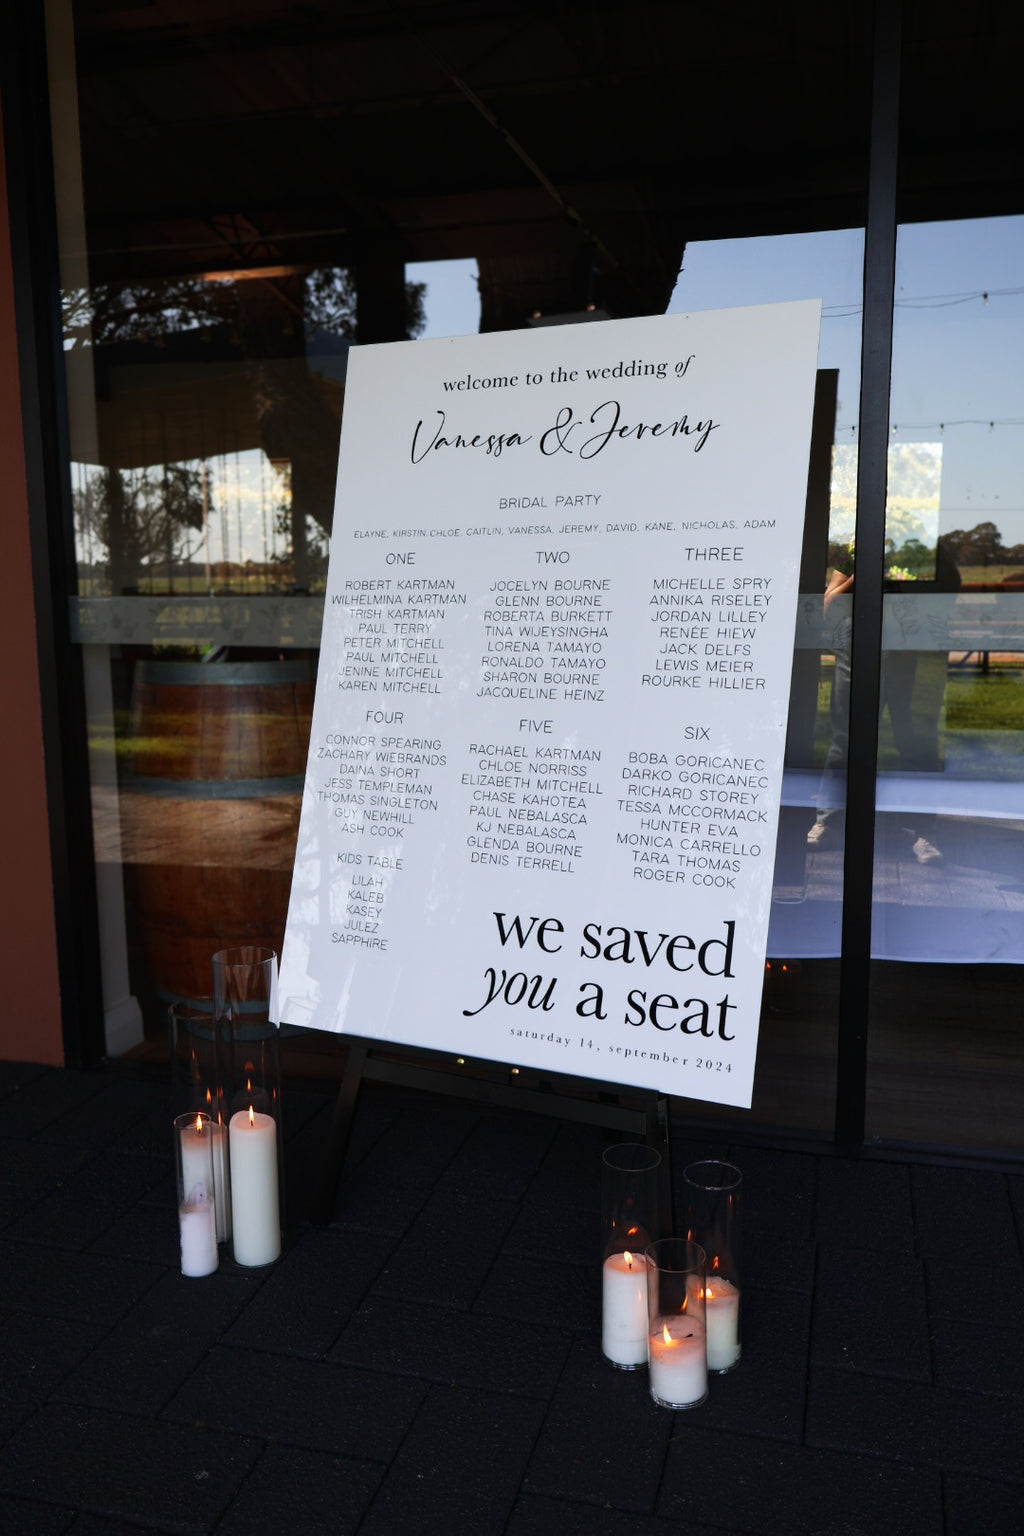 welcome to the wedding of
Vanessa & Jeremy
BRIDAL PARTY
ELAYNE, KIRSTIN, CHLOE, CAITLIN, VANESSA, JEREMY, DAVID, KANE, NICHOLAS, ADAM
ONE
ROBERT KARTMAN
WILHELMINA KARTMAN
TRISH KARTMAN
PAUL TERRY
PETER MITCHELL
PAUL MITCHELL
JENINE MITCHELL
KAREN MITCHELL
TWO
JOCELYN BOURNE
GLENN BOURNE
ROBERTA BURKETT
TINA WIJEYSINGHA
LORENA TAMAYO
RONALDO TAMAYO
SHARON BOURNE
JACQUELINE HEINZ
THREE
MICHELLE SPRY
ANNIKA RISELEY
JORDAN LILLEY
RENÉE HIEW
JACK DELFS
LEWIS MEIER
ROURKE HILLIER
FOUR
CONNOR SPEARING
ZACHARY WIEBRANDS
DAINA SHORT
JESS TEMPLEMAN
THOMAS SINGLETON
GUY NEWHILL
ASH COOK
FIVE
RACHAEL KARTMAN
CHLOE NORRISS
ELIZABETH MITCHELL
CHASE KAHOTEA
PAUL NEBALASCA
KJ NEBALASCA
GLENDA BOURNE
DENIS TERRELL
SIX
BOBA GORICANEC
DARKO GORICANEC
RICHARD STOREY
TESSA MCCORMACK
HUNTER EVA
MONICA CARRELLO
TARA THOMAS
ROGER COOK
KIDS TABLE
LILAH
KALEB
KASEY
JULEZ
SAPPHIRE
we saved
you a seat
saturday 14, september 2024